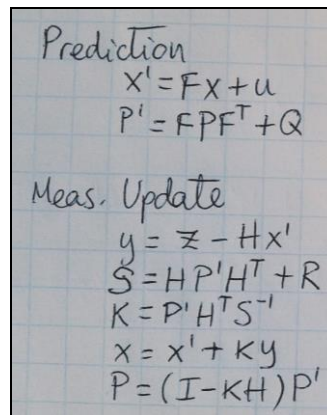 Prediction
x' = Fx + u
P' = FPFᵀ + Q
Meas. Update
y = z - Hx'
S = HP'Hᵀ + R
K = P'HᵀS⁻¹
x = x' + Ky
P = (I - KH)P'